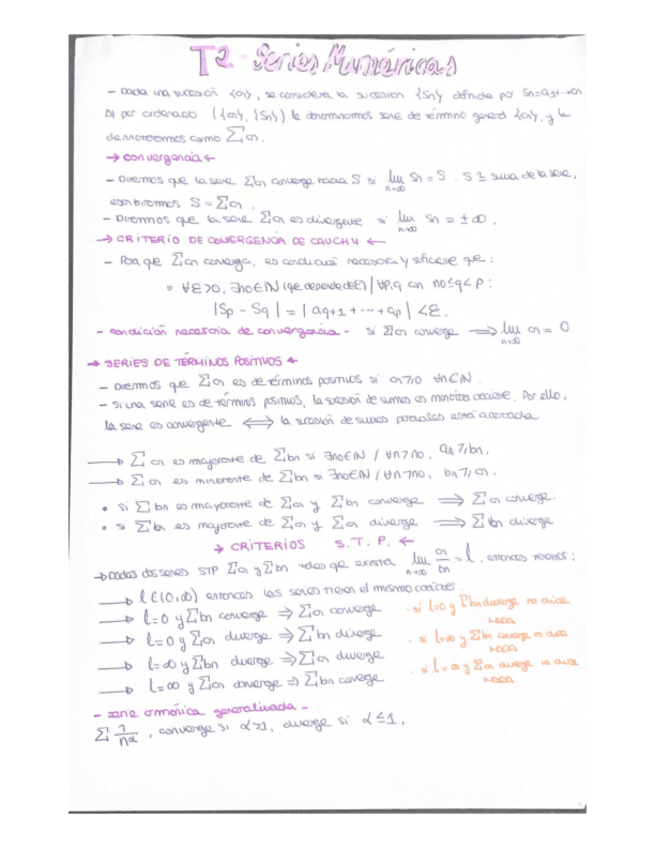 T2 - Series Numéricas
- Dada una sucesión {an}, se considera la sucesion {Sn} definida por Sn=a1+...+an.
Al par ordenado ({an}, {Sn}) le denominamos serie de término general {an}, y la
denotaremos como ∑an.
→ convergencia ←
- Diremos que la serie ∑an converge hacia S si lim n→∞ Sn = S. S ≡ suma de la serie,
escribiremos S = ∑an.
- Diremos que la serie ∑an es divergente si lim n→∞ Sn = ±∞.
→ CRITERIO DE CONVERGENCIA DE CAUCHY ←
- Para que ∑an converja, es condición necesaria y suficiente que:
∘ ∀ε>0, ∃no∈ℕ (que depende de ε) | ∀p,q con no≤q<p :
|Sp - Sq| = | aq+1 + ... + ap | < ε.
- condición necesaria de convergencia - si ∑an converge ⟹ lim n→∞ an = 0
→ SERIES DE TÉRMINOS POSITIVOS ←
- Diremos que ∑an es de términos positivos si an≥0 ∀n∈ℕ.
- Si una serie es de términos positivos, la sucesión de sumas es monótona creciente. Por ello,
la serie es convergente ⟺ la sucesión de sumas parciales está acotada
→ ∑an es mayorante de ∑bn si ∃no∈ℕ / ∀n≥no, an≥bn.
→ ∑an es minorante de ∑bn si ∃no∈ℕ / ∀n≥no, bn≥an.
• Si ∑bn es mayorante de ∑an y ∑bn converge ⟹ ∑an converge.
• si ∑bn es mayorante de ∑an y ∑an diverge ⟹ ∑bn diverge
→ CRITERIOS S.T.P. ←
→ Dadas dos series STP ∑an y ∑bn tales que exista lim n→∞ an/bn = l, entonces tenemos:
→ l∈(0,∞) entonces las series tienen el mismo carácter
→ l=0 y ∑bn converge ⇒ ∑an converge
. si l=0 y ∑bn diverge no dice
nada
→ l=0 y ∑an diverge ⇒ ∑bn diverge
. si l=∞ y ∑bn converge no dice
nada
→ l=∞ y ∑bn diverge ⇒ ∑an diverge
. si l=∞ y ∑an diverge no dice
nada
→ l=∞ y ∑an converge ⇒ ∑bn converge
- serie armónica generalizada -
∑ 1/nα, converge si α>1, diverge si α≤1.